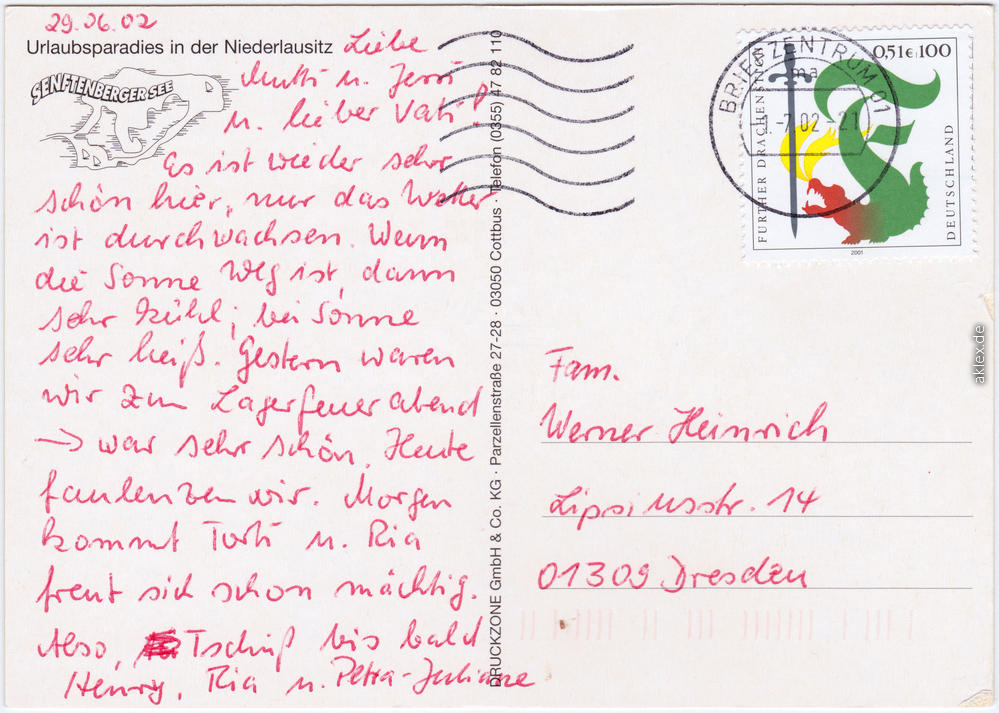 29.06.02
Urlaubsparadies in der Niederlausitz
SENFTENBERGER SEE
Liebe
Mutti u.
u. lieber Vati!
Es ist wieder sehr
schön hier, nur das Wetter
ist durchwachsen. Wenn
die Sonne weg ist, dann
sehr kühl; bei Sonne
sehr heiß. Gestern waren
wir zum Lagerfeuerabend
→ war sehr schön. Heute
faulenzen wir. Morgen
kommt Torti u. Ria
freut sich schon mächtig.
Also, Tschüß bis bald
Henry, Ria u. Petra-Juliane
DRUCKZONE GmbH & Co. KG · Parzellenstraße 27-28 · 03050 Cottbus · Telefon (0355) 47 82 110
BRIEFZENTRUM 01
ma
-7.02-21
0,51€ 100
FURTHER DRACHENSTICH
DEUTSCHLAND
2001
Fam.
Werner Heinrich
Lipsiusstr. 14
01309 Dresden
aklex.de